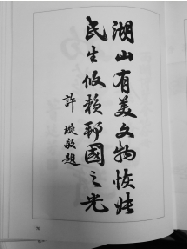 湖山有美文物恢
民生攸賴邦國之光
許
敬題